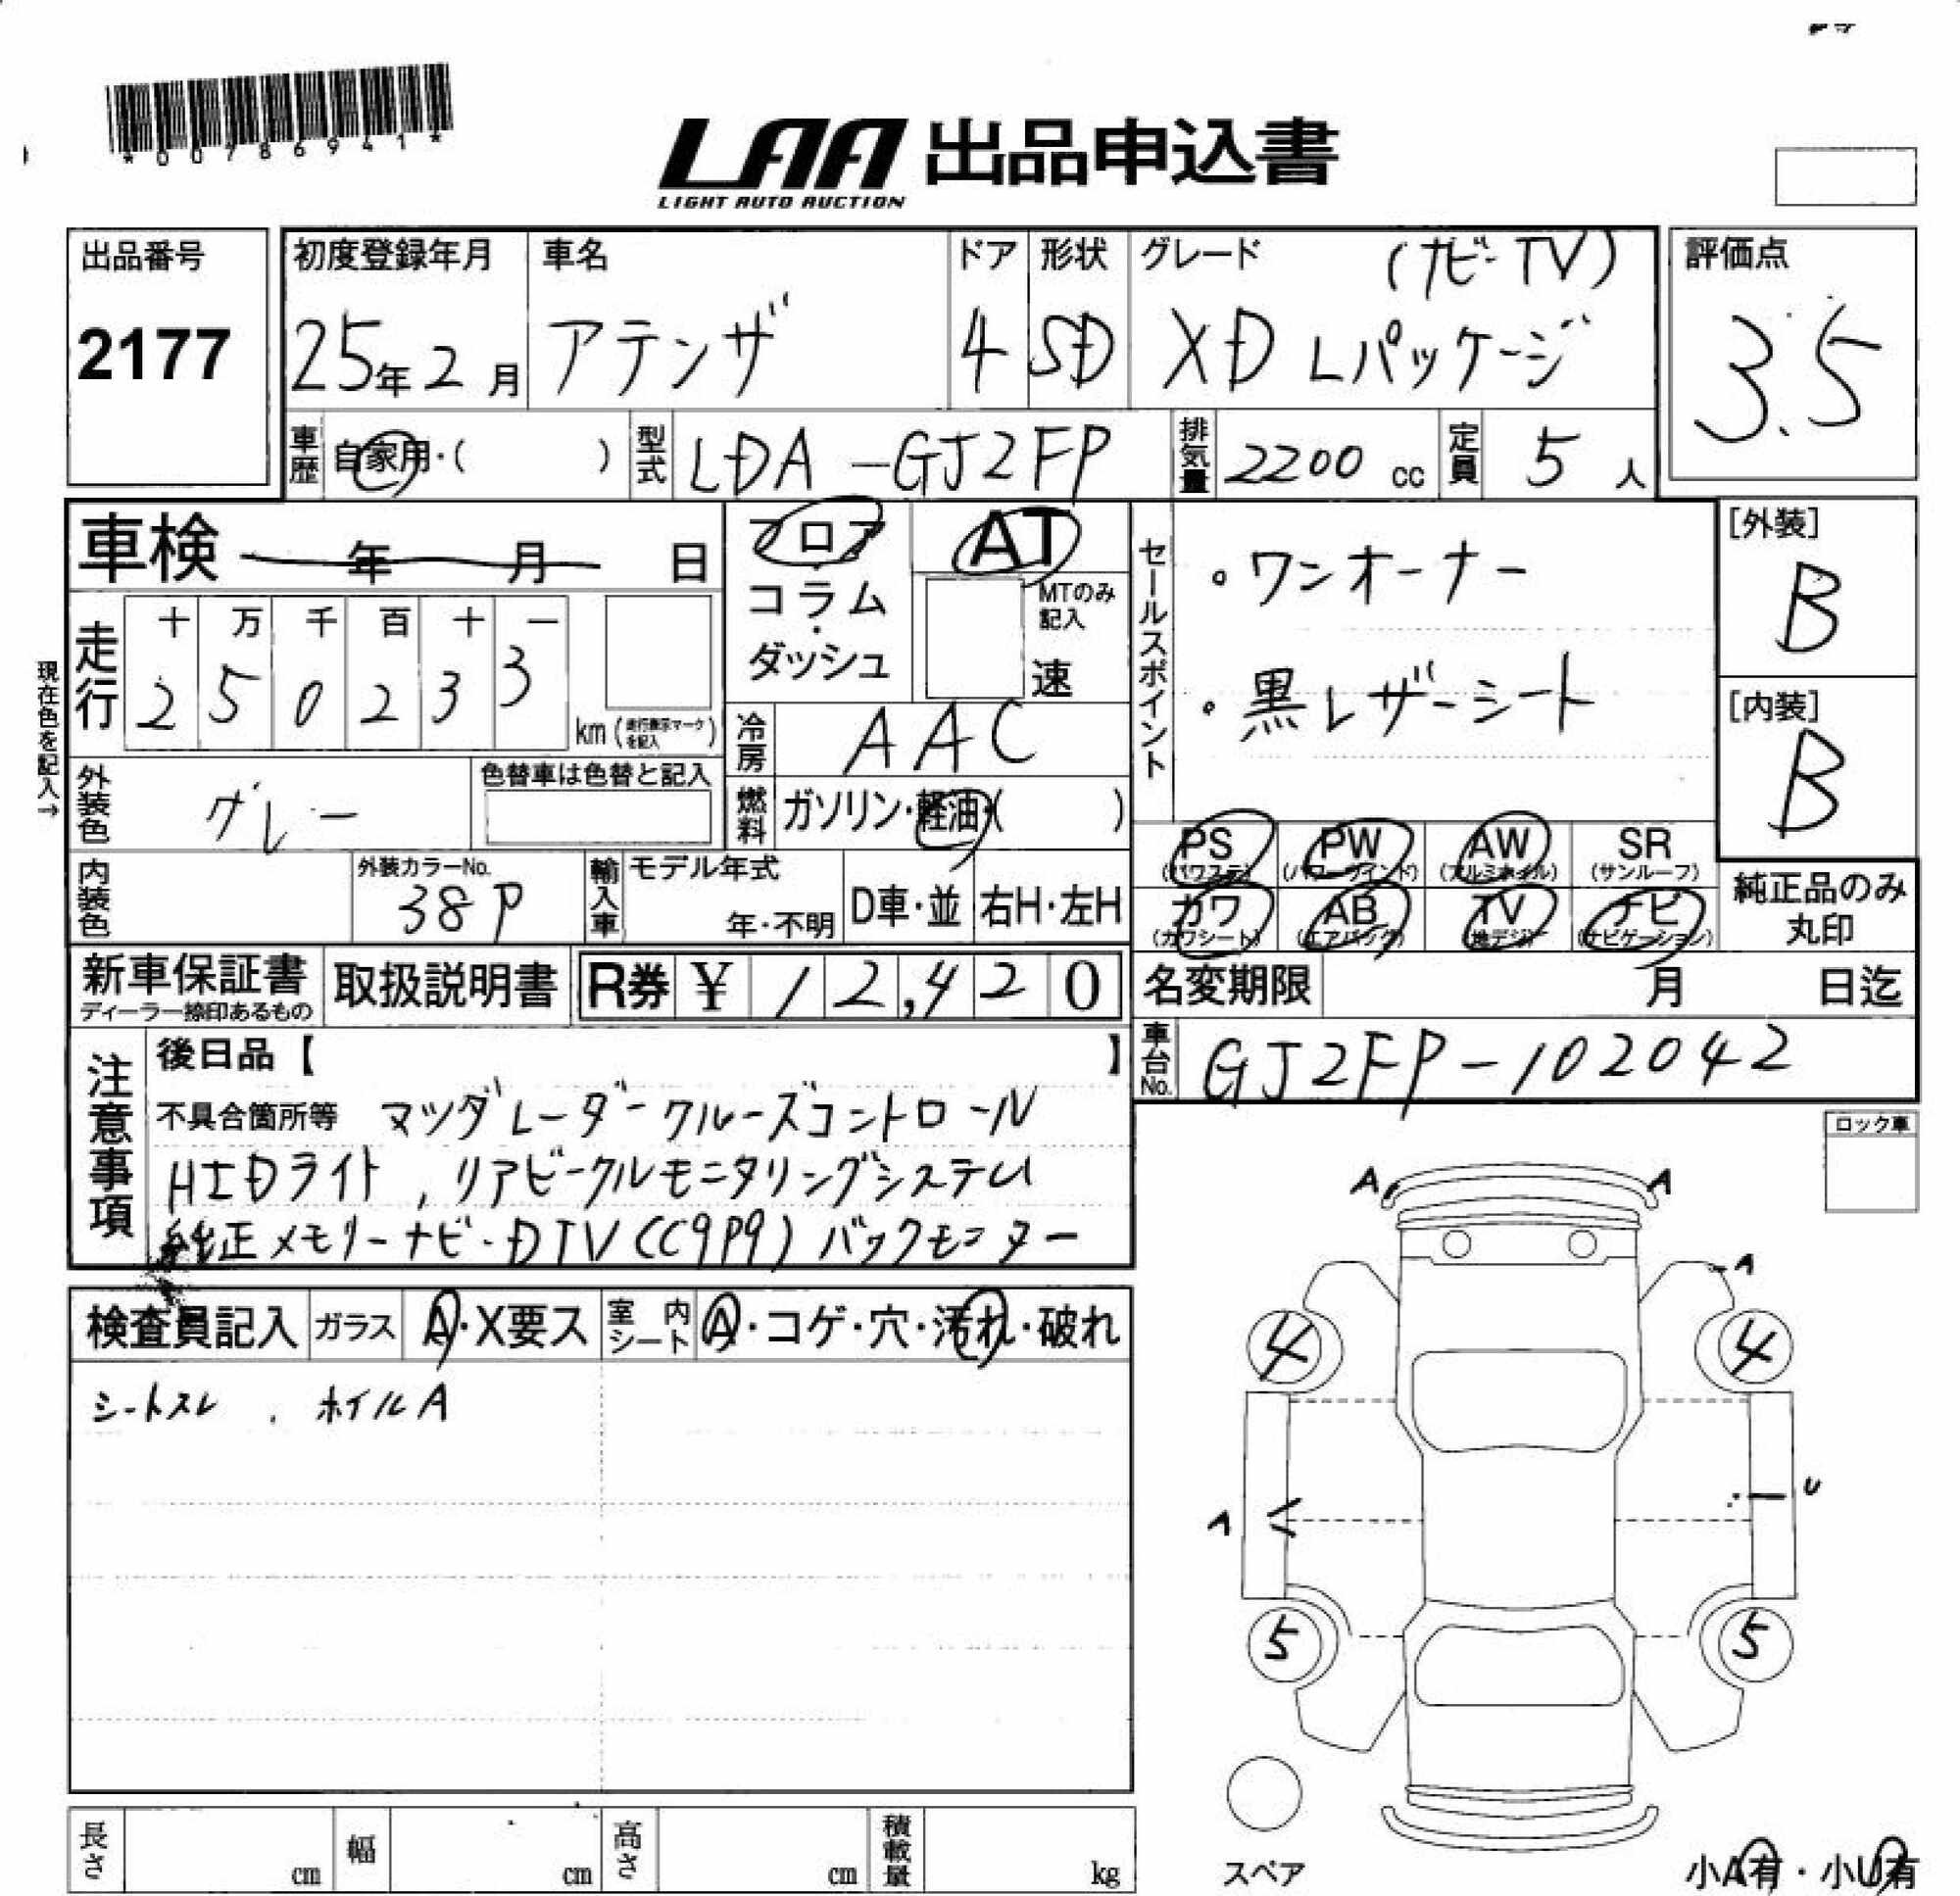 *00786941*
LAA 出品申込書
LIGHT AUTO AUCTION
出品番号
2177
初度登録年月
25年2月
車名
アテンザ
ドア
4
形状
SD
グレード (ナビ・TV)
XD Lパッケージ
評価点
3.5
車歴 自家用・( )
型式 LDA-GJ2FP
排気量 2200 cc
定員 5 人
車検 年 月 日
走行
十 万 千 百 十 一
2 5 0 2 3 3
km(走行表示マークを記入)
現在色を記入→
フロア・コラム・ダッシュ
AT
MTのみ記入
速
冷房 AAC
燃料 ガソリン・軽油・( )
外装色 グレー
色替車は色替と記入
内装色
外装カラーNo.
38P
輸入車
モデル年式
年・不明
D車・並
右H・左H
セールスポイント
・ワンオーナー
・黒レザーシート
[外装]
B
[内装]
B
PS (パワステ) PW (パワーウインド) AW (アルミホイル) SR (サンルーフ)
カワ (カワシート) AB (エアバック) TV (地デジ) ナビ (ナビゲーション)
純正品のみ
丸印
新車保証書
ディーラー捺印あるもの
取扱説明書
R券 ¥ 12,420
名変期限 月 日迄
車台No. GJ2FP-102042
注意事項
後日品【 】
不具合箇所等 マツダレーダークルーズコントロール
HIDライト, リアビークルモニタリングシステム
純正メモリーナビ・DTV(C9P9) バックモニター
ロック車
検査員記入
ガラス A・X要ス
室内シート A・コゲ・穴・汚れ・破れ
シートスレ 、 ホイルA
A A
A
4 4
A U
5 5
スペア
小A有・小U有
長さ cm
幅 cm
高さ cm
積載量 kg